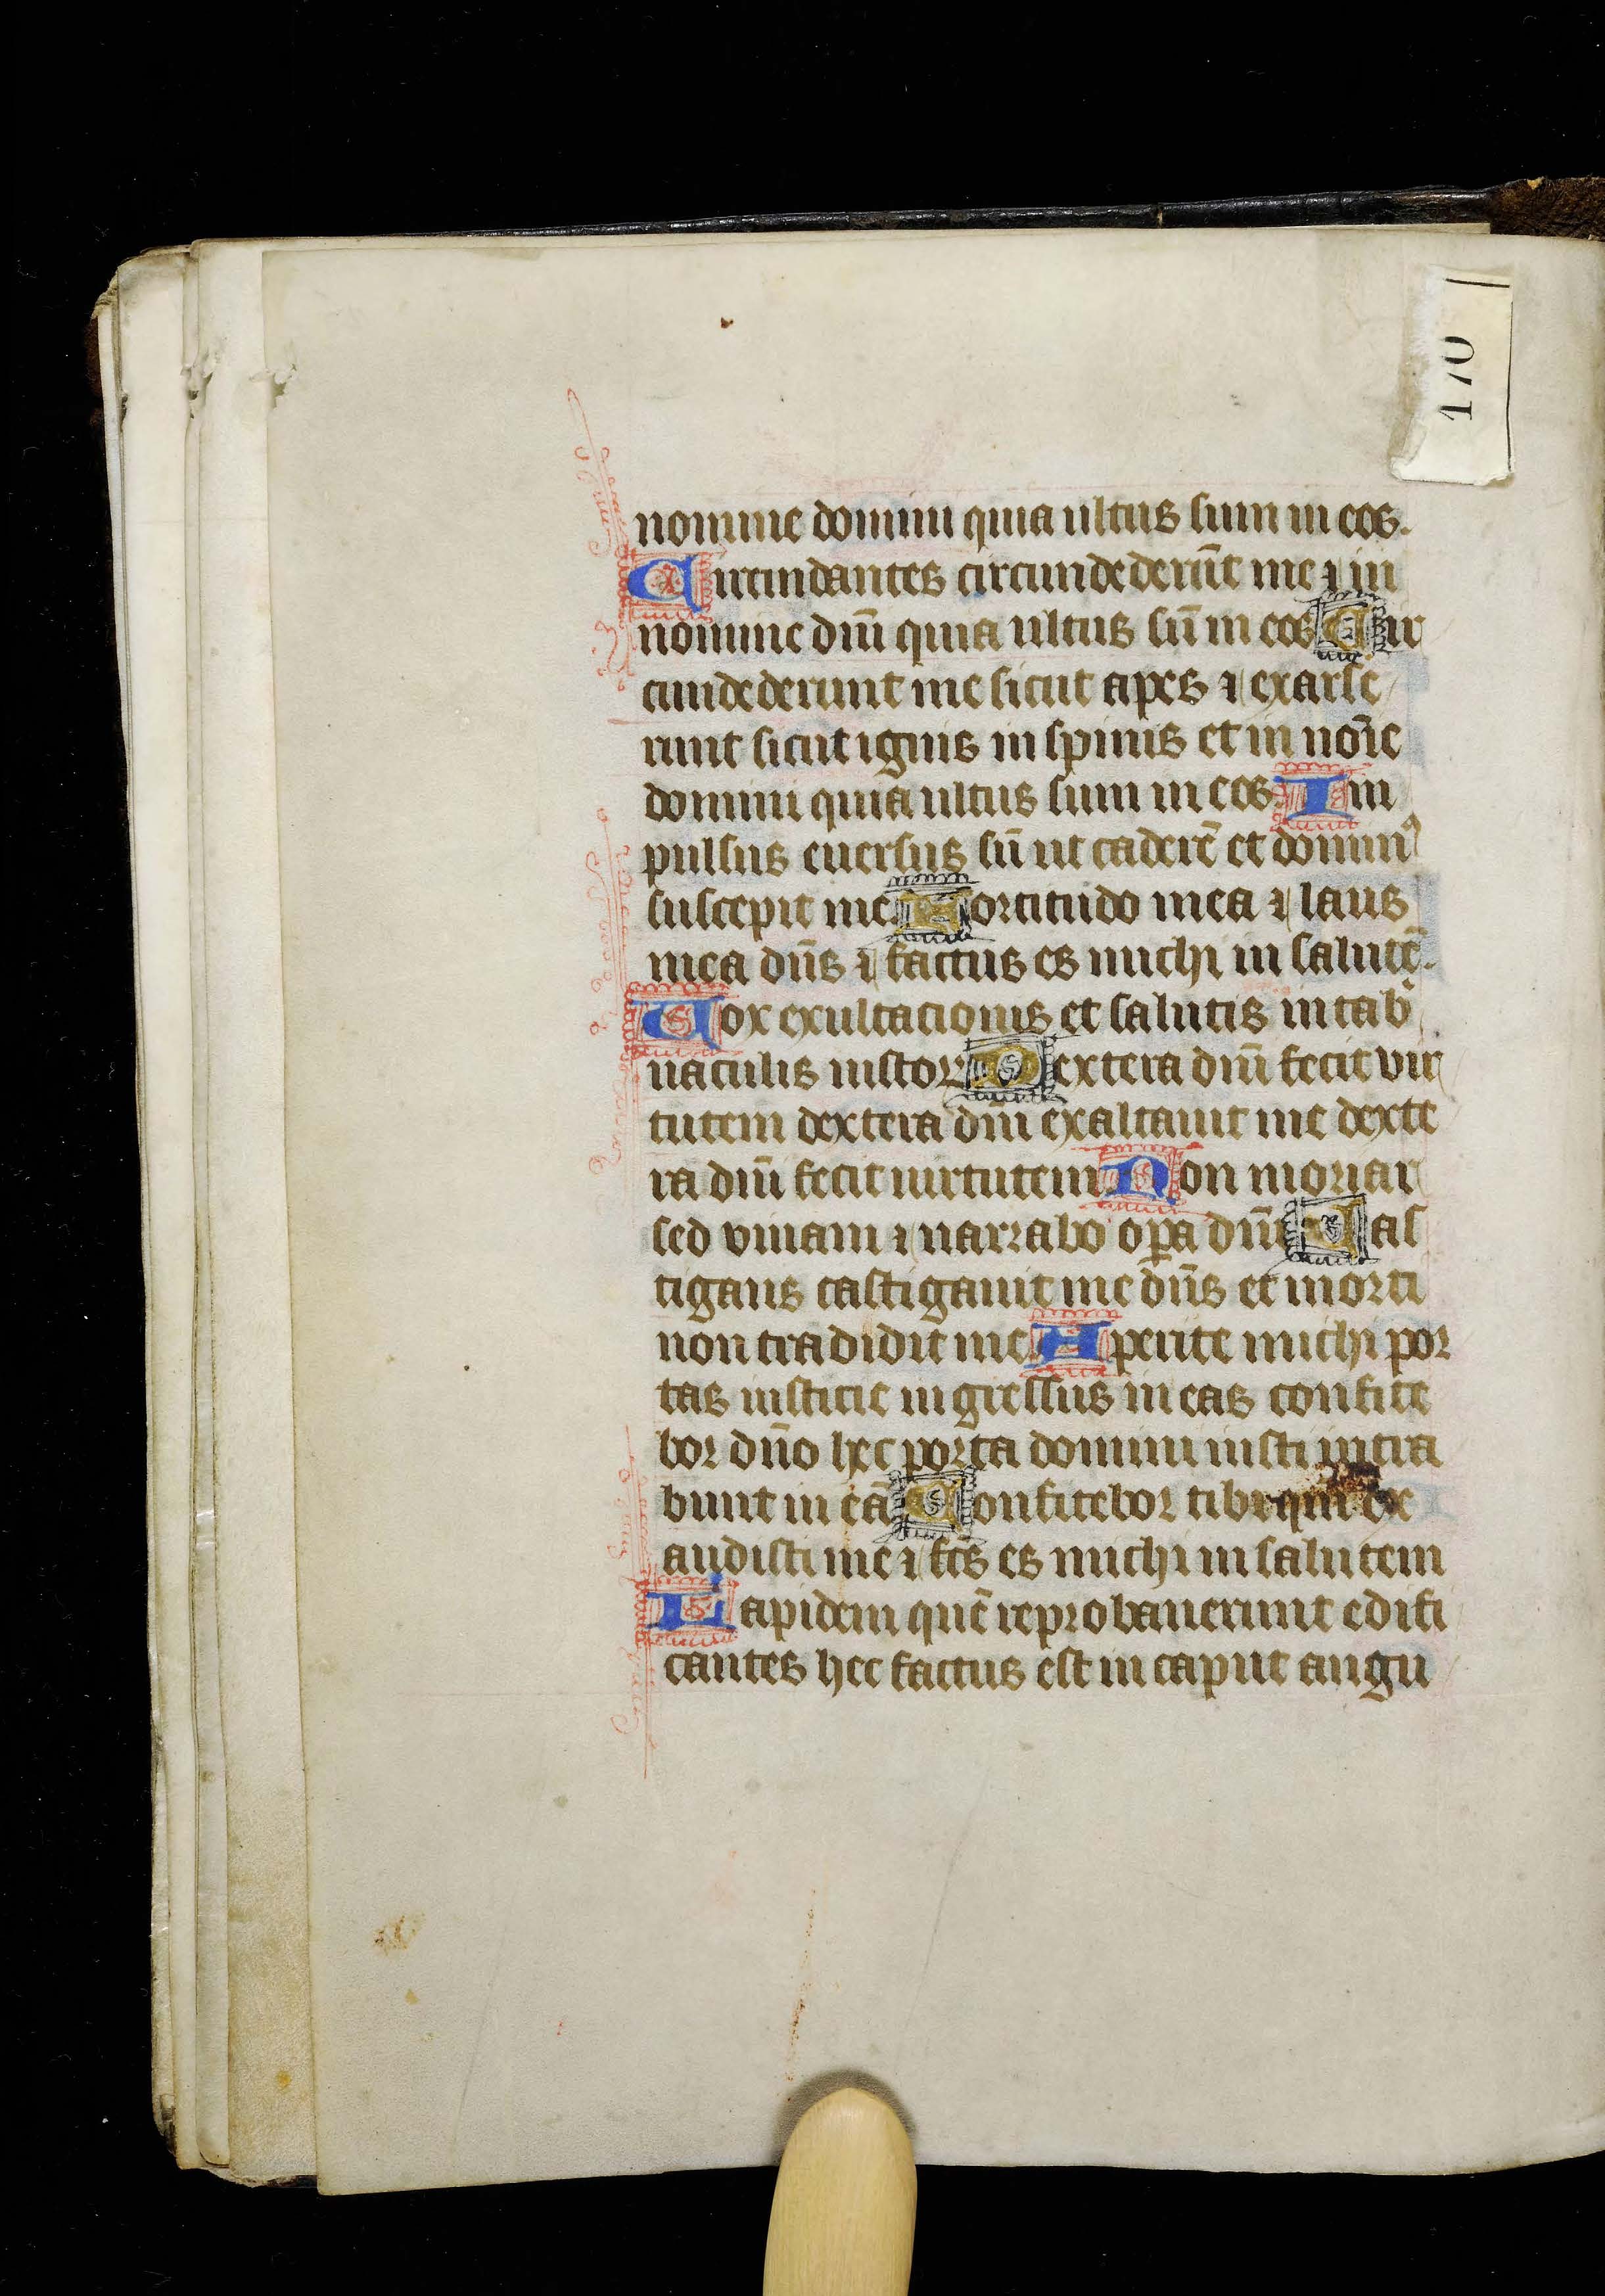 170
nomine domini quia ultus sum in eos.
Circundantes circundederūt me ⁊ in
nomine dnī quia ultus sū in eos Cir
cundederunt me sicut apes ⁊ exarse
runt sicut ignis in spinis et in noīe
domini quia ultus sum in eos. In
pulsus euersus sū ut caderē et dominꝰ
suscepit me. Fortitudo mea ⁊ laus
mea dn̄s ⁊ factus es michi in salutē.
Vox exultacionis et salutis in tab̾
naculis iustoꝝ Dextera dnī fecit vir
tutem dextera dnī exaltauit me dexte
ra dnī fecit uirtutem. Non moriar
sed viuam ⁊ narrabo oꝑa dnī Cas
tigans castigauit me dn̄s et morti
non tradidit me. Aperite michi por
tas iusticie ingressus in eas confite
bor dn̄o hec porta domini iusti intra
bunt in eā Confitebor tibi qm̄ ex
audisti me ⁊ fc̄s es michi in salutem
Lapidem quē reprobauerunt edifi
cantes hec factus est in caput angu